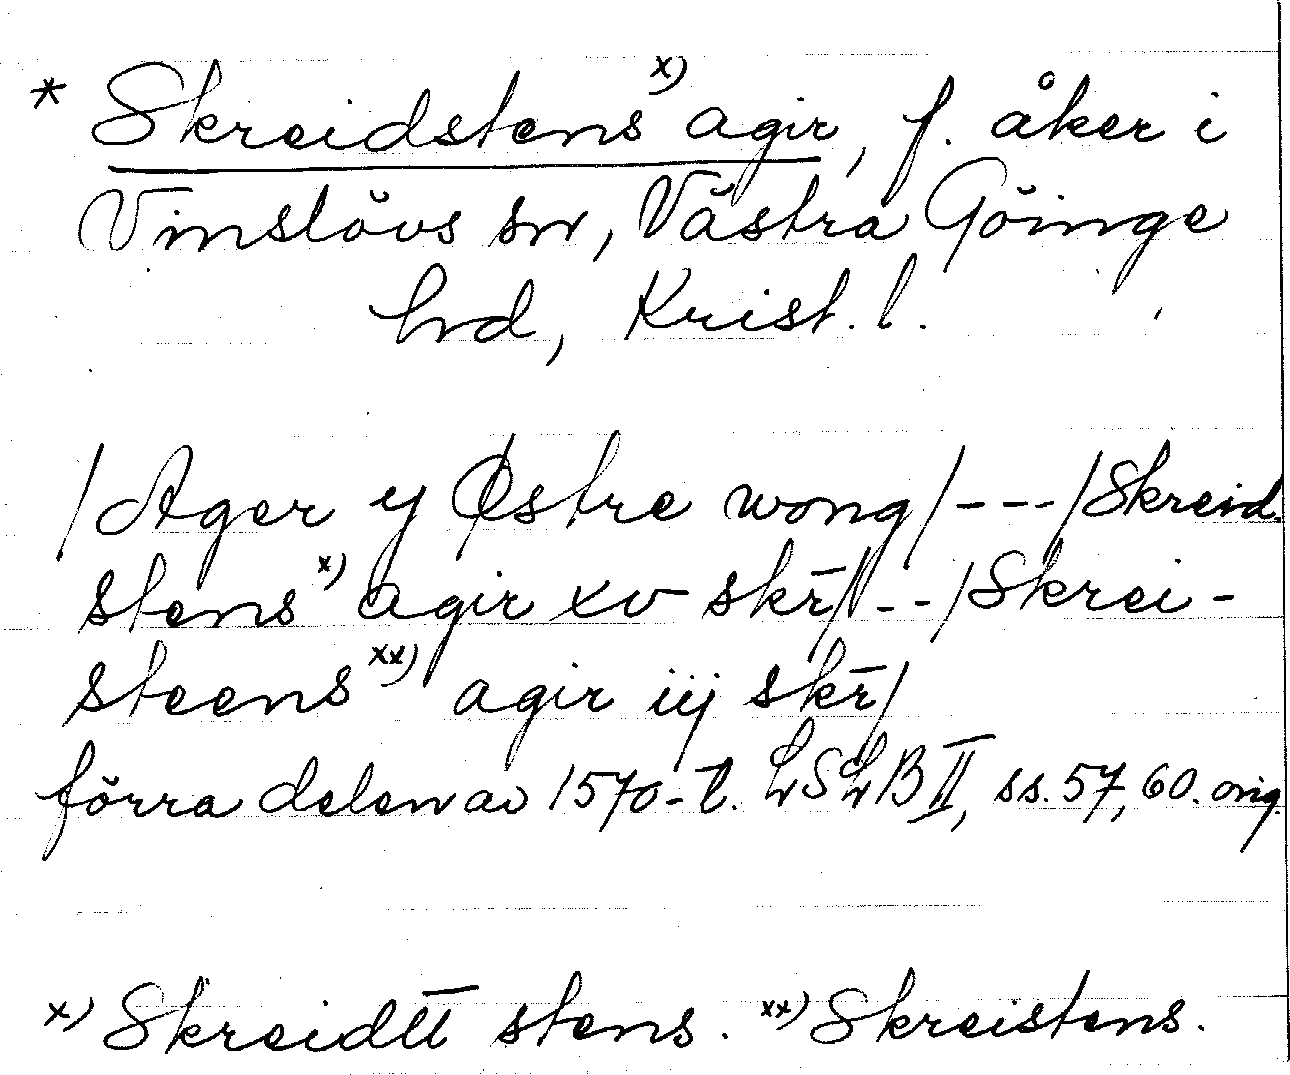 * Skreidstens x) agir, f. åker i
Vinslövs sn, Västra Göinge
hrd, Krist. l.
/Ager y Østre wong/---/Skreid-
stens x) agir xv skr̄/--/Skrei-
steens xx) agir iij skr̄/
förra delen av 1570-t. LSLB II, ss. 57, 60. orig.
x) Skreidtt stens. xx) Skreistens.